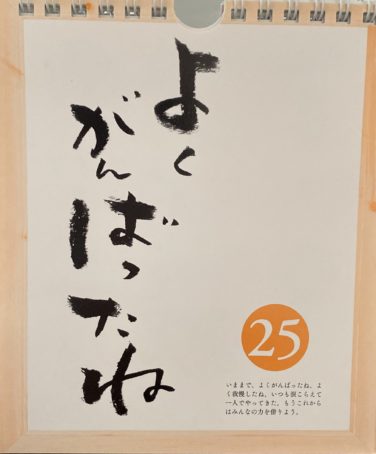 よく
がん
ばった
ね
25
いままで、よくがんばったね。よ
く我慢したね。いつも涙こらえて
一人でやってきた。もうこれから
はみんなの力を借りよう。